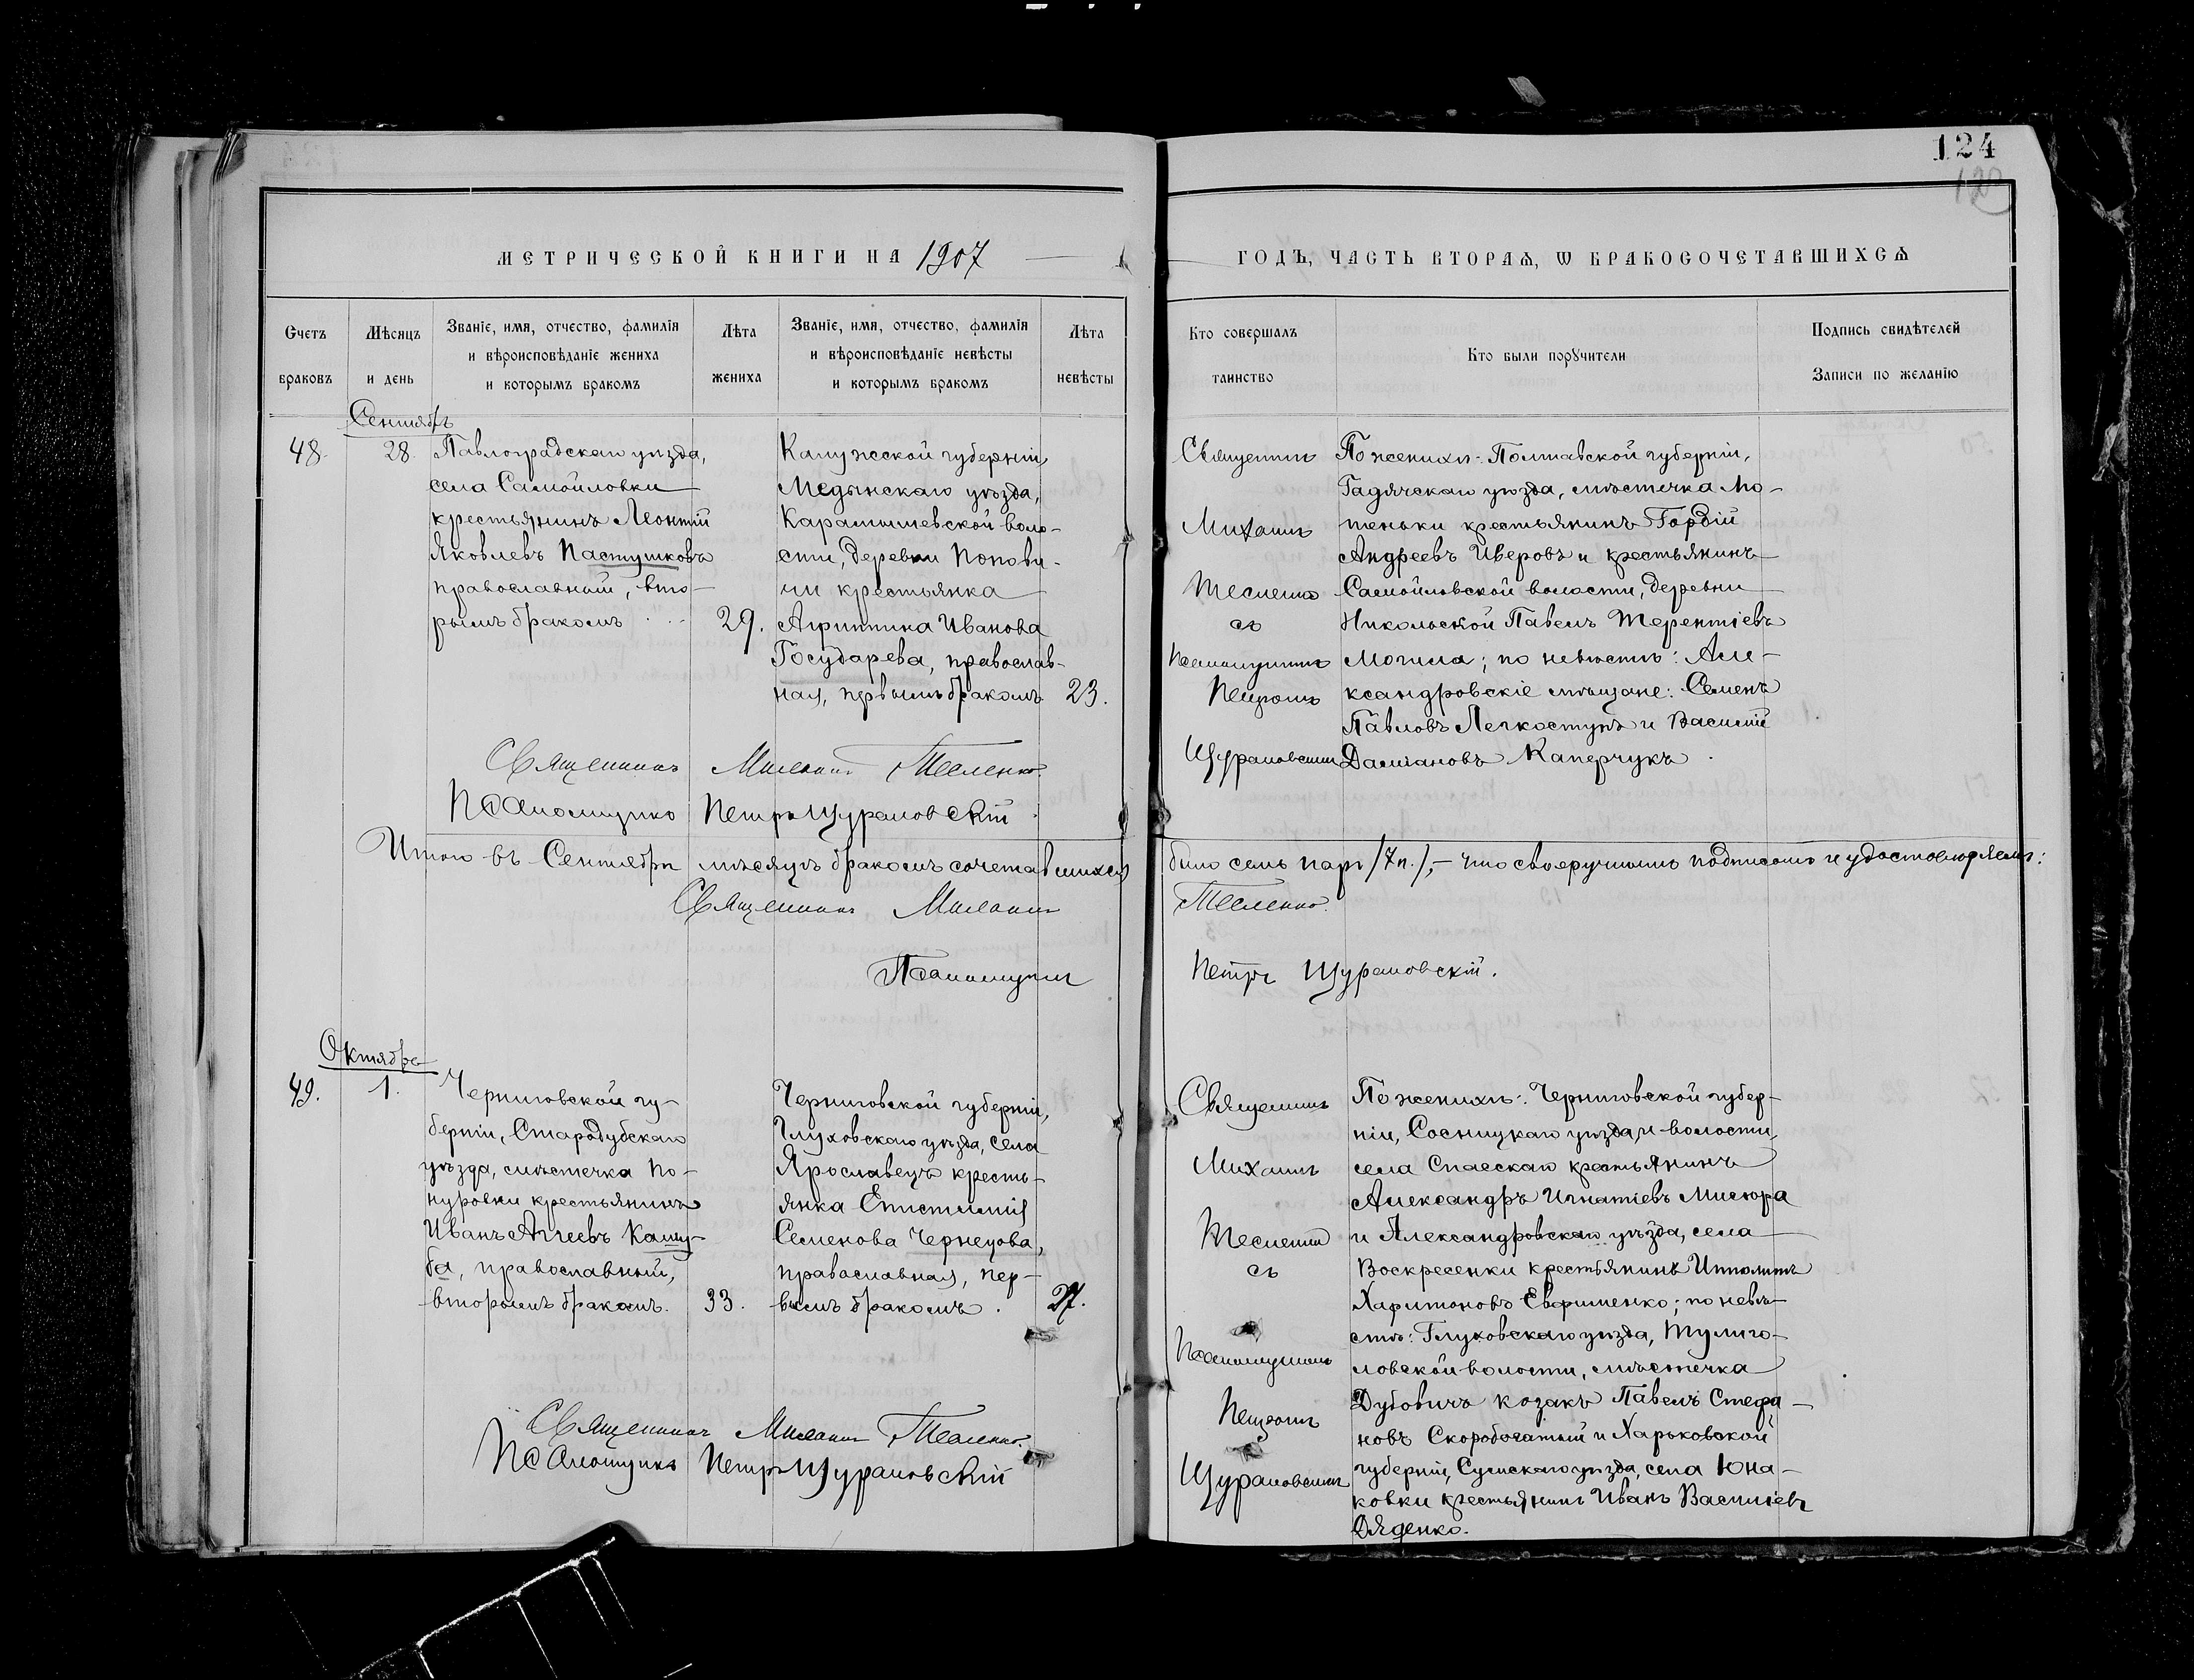 124
МЕТРИЧЕСКОЙ КНИГИ НА 1907
ГОДЪ, ЧАСТЬ ВТОРАЯ, Ѡ БРАКОСОЧЕТАВШИХСЯ
Счетъ браковъ
Мѣсяцъ и день
Званіе, имя, отчество, фамилія
и вѣроисповѣданіе жениха
и которымъ бракомъ
Лѣта жениха
Званіе, имя, отчество, фамилія
и вѣроисповѣданіе невѣсты
и которымъ бракомъ
Лѣта невѣсты
Кто совершалъ таинство
Кто были порꙋчители
Подпись свидѣтелей
Записи по желанію
Сентябрь
48.
28.
Павлоградскаго уѣзда,
села Самойловки
крестьянинъ Леонтій
Яковлевъ Пастушковъ
православный, вто-
рымъ бракомъ
29.
Калужской губерніи
Медынскаго уѣзда,
Карамышевской воло-
сти, деревни Попови-
чи крестьянка
Агриппина Иванова
Государева, православ-
ная, первымъ бракомъ
23.
Священникъ
Михаилъ
съ
Псаломщикомъ
Петромъ
Щурановскимъ
По женихѣ: Полтавской губерніи,
Гадячскаго уѣзда, мѣстечка Лю-
теньки крестьянинъ Гордій
Андреевъ Иверовъ и крестьянинъ
Самойловской волости, деревни
Никольской Павелъ Терентіевъ
Могила; по невѣстѣ: Але-
ксандровскіе мѣщане: Семенъ
Павловъ Легкоступъ и Василій
Даміановъ Каперчукъ.
Священникъ Михаилъ
Псаломщикъ Петръ Щурановскій
Итого въ Сентябрѣ мѣсяцѣ бракомъ сочетавшихся
было семь паръ /7 п./, - что своеручнымъ подписомъ и удостовѣряемъ:
Священникъ Михаилъ
Псаломщикъ
Петръ Щурановскій.
Октябрь
49.
1.
Черниговской гу-
берніи, Стародубскаго
уѣзда, мѣстечка По-
нуровки крестьянинъ
Иванъ Аггеевъ Кашу-
ба, православный,
вторымъ бракомъ.
33.
Черниговской губерніи,
Глуховскаго уѣзда, села
Ярославецъ кресть-
янка Епистимія
Семенова Чернецова,
православная, пер-
вымъ бракомъ.
27.
Священникъ
Михаилъ
съ
Псаломщикомъ
Петромъ
Щурановскимъ
По женихѣ: Черниговской губер-
ніи, Сосницкаго уѣзда, и волости,
села Спасскаго крестьянинъ
Александръ Игнатіевъ Мисюра
и Александровскаго уѣзда, села
Воскресенки крестьянинъ Ипполитъ
Харитоновъ Евфименко; по невѣ-
стѣ: Глуховскаго уѣзда, Тулиго-
ловской волости, мѣстечка
Дубовичъ козакъ Павелъ Стефа-
новъ Скоробогатый и Харьковской
губерніи, Сумскаго уѣзда, села Юна-
ковки крестьянинъ Иванъ Василіевъ
Дяденко.
Священникъ Михаилъ
Псаломщикъ Петръ Щурановскій